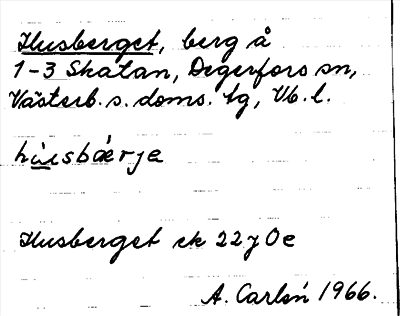 Husberget, berg å
1-3 Skatan, Degerfors sn,
Västerb. s. doms. tg, Vb. l.
Husberget ek 22J0e
A. Carlsń 1966.